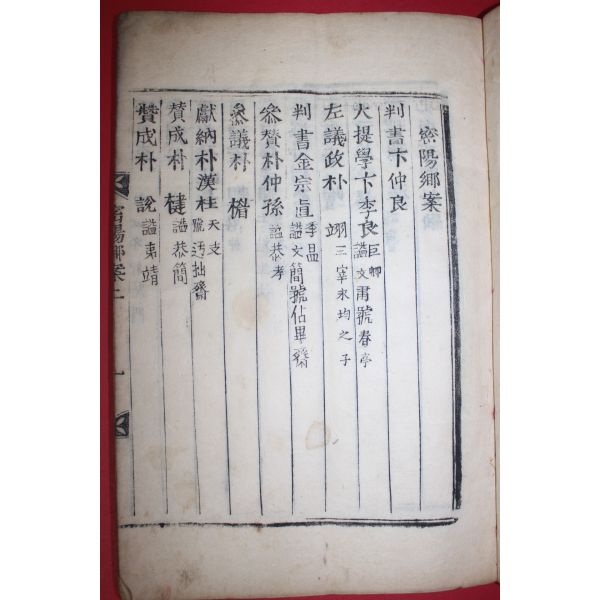 宻陽鄕案
判書卞仲良
大提學卞季良 巨卿 謚文肅號春亭
左議政朴 翊 三宰永均之子
判書金宗直 季昷 謚文簡號佔畢齋
叅贊朴仲孫 謚恭孝
叅議朴 楷
獻納朴漢柱 天支 號迂拙齋
贊成朴 楗 謚恭簡
贊成朴 說 謚夷靖
密陽鄕案 一